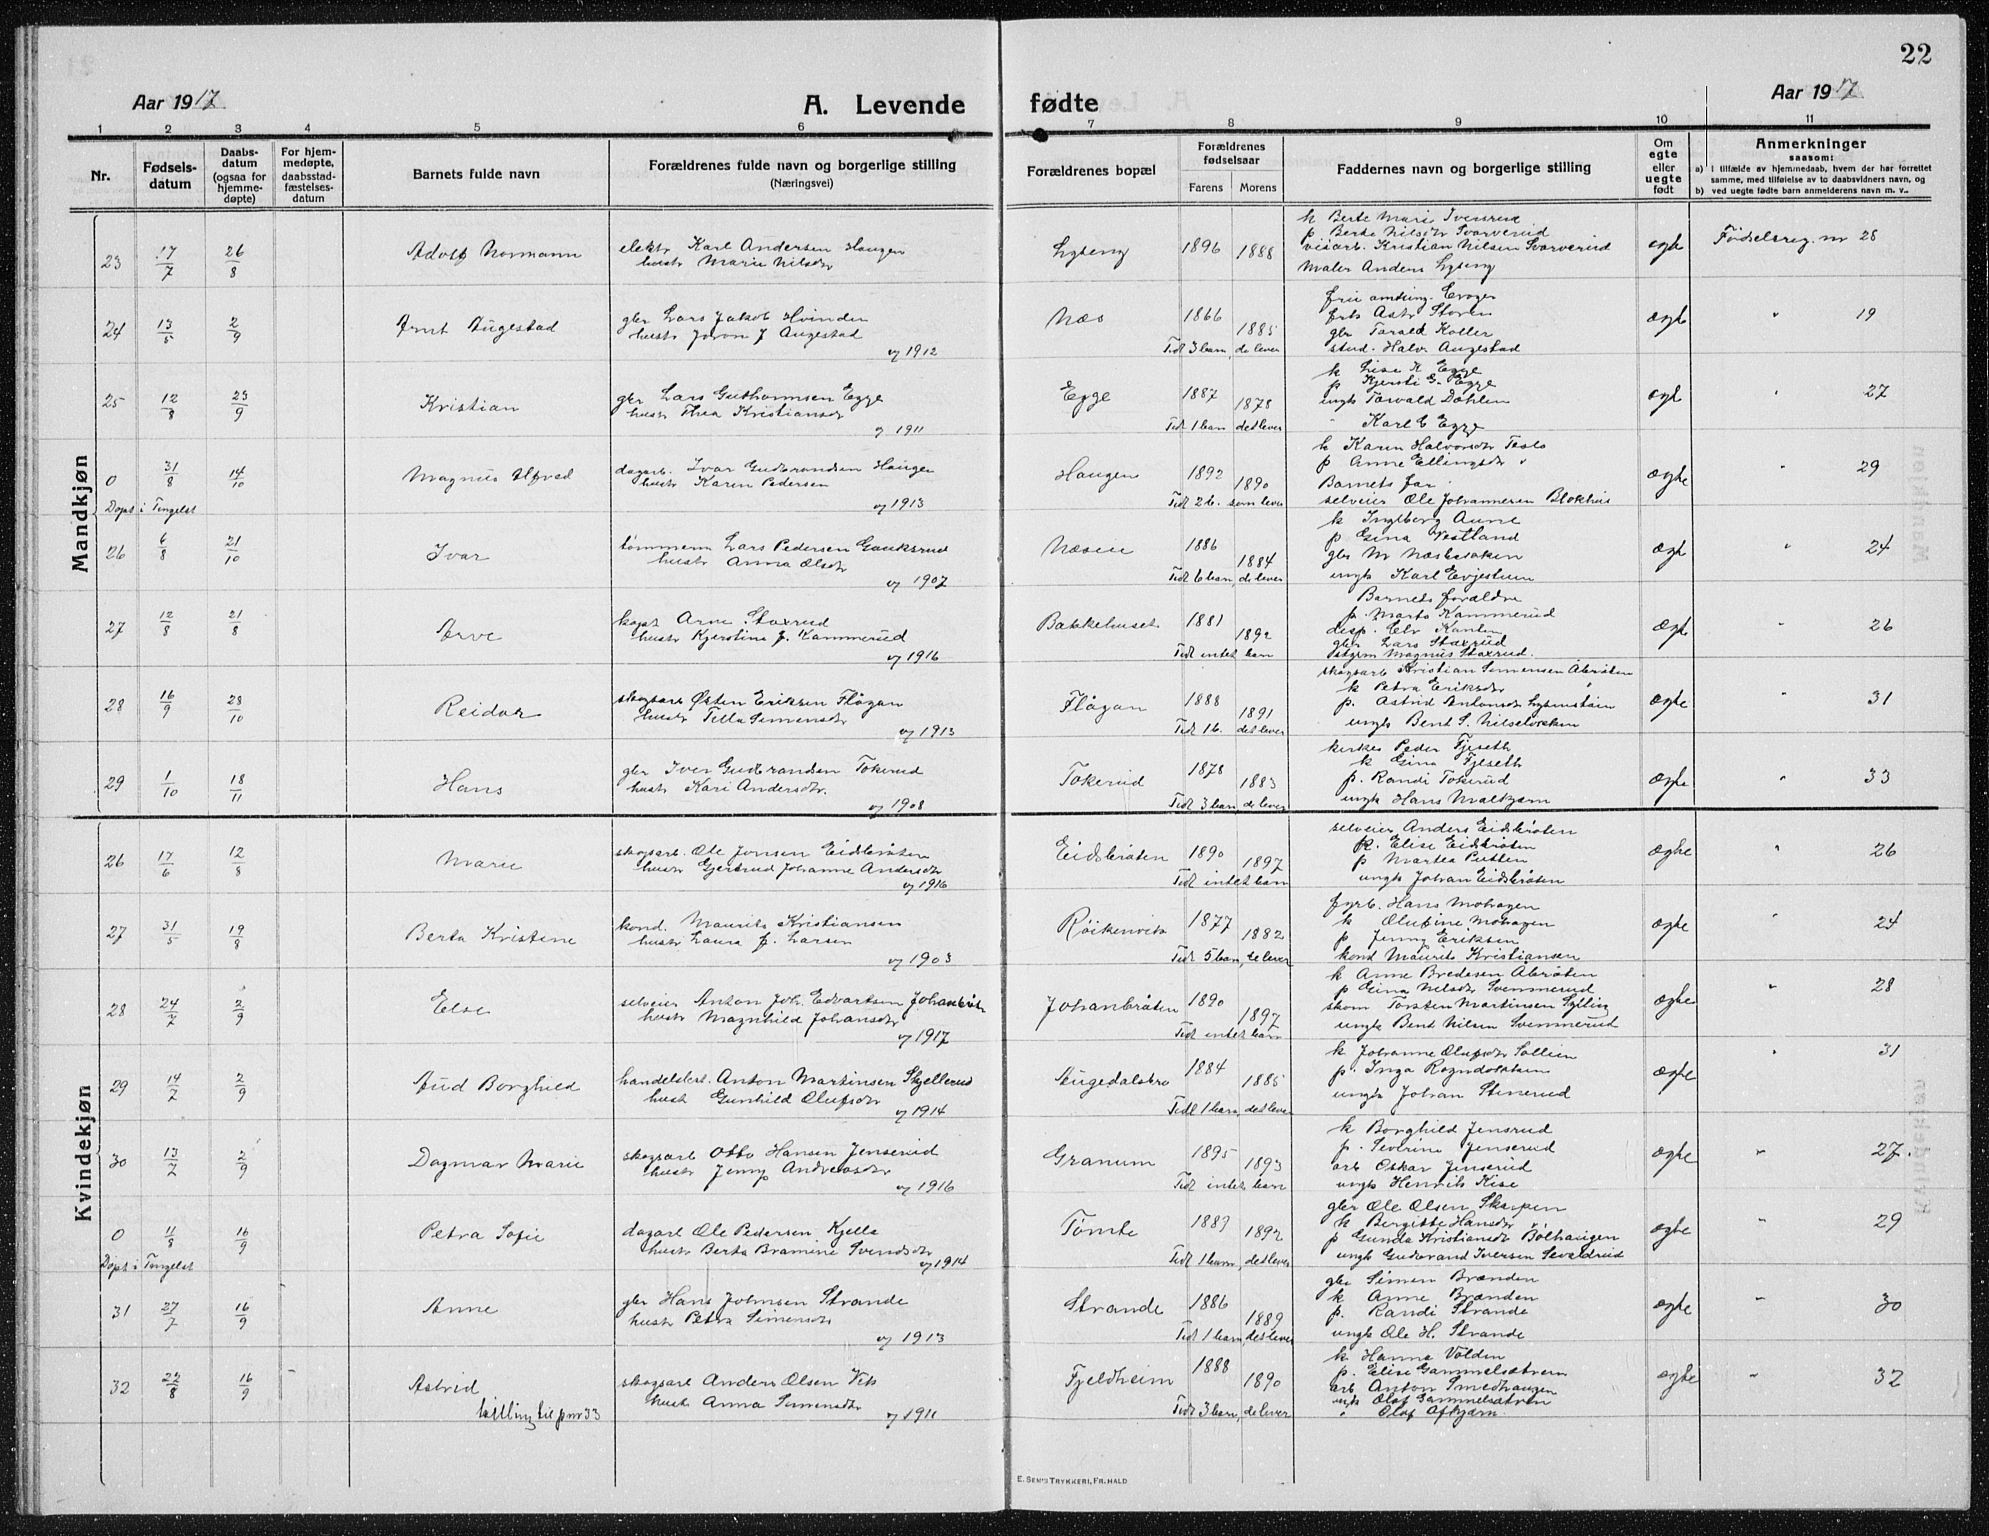 22
Aar 1917
A. Levende fødte
Aar 1917
1 2 3 4 5 6 7 8 9 10 11
Nr.
Fødsels-
datum
Daabs-
datum
(ogsaa for
hjemme-
døpte)
For hjem-
medøpte,
daabsstad-
fæstelses-
datum
Barnets fulde navn
Forældrenes fulde navn og borgerlige stilling
(Næringsvei)
Forældrenes bopæl
Forældrenes
fødselsaar
Farens Morens
Faddernes navn og borgerlige stilling
Om
egte
eller
uegte
født
Anmerkninger
saasom:
a) I tilfælde av hjemmedaab, hvem der har forrettet
samme, med tilføielse av to daabsvidners navn, og
b) ved uegte fødte barn anmelderens navn m. v..
Mandkjøn
23 17/7 26/8 Adolf Normann
elektr Karl Andersen Haugen
hustr Marie Nilsdr
Lyseng 1896 1888
k Berte Marie Iversrud
p. Berte Nilsdr Svarverud
visarb. Kristian Nilsen Svarverud
Maler Anders Lyseng
egte Fødselsreg. nr 28
24 13/5 2/9 Arnt Augestad
gbr Lars Jakob Hvinden
hustr Joron J Augestad
og 1912
Næs 1866 1885
Tidl 3 barn, de lever
fru amtsing.
frk Astr Storen
gbr Tarald Koller
stud. Halv. Augestad
ægte " 19
25 12/8 23/9 Kristian
gbr Lars Guthormsen Egge
hustr Thea Kristiansdr
g 1911
Egge 1887 1878
Tidl 1 barn det lever
k Lise K Egge
p Kjersti G. Egge
ungk Torvald Dæhlen
" Karl G Egge
egt " 27
0 31/8 14/10 Magnus Alfred
Døpt i Tingelst
dagarb. Ivar Gudbrandsen Haugen
hustr Karen Pedersen
og 1913
Haugen 1892 1890
Tidl 2 b. som lever
k Karen Halvorsdr Teslo
p Anne Ellingsdr "
Barnets far
selveier Ole Johannesen Blokhus
ægte " 29
26 6/8 21/10 Ivar
tømmerm Lars Pedersen Gauksrud
hustr Anna Olsdr
og 1907
Næsene 1886 1884
Tidl 6 barn, de lever
k Ingeborg Aune
p Gina Vestland
gbr M Næsbakken
ungk Karl Evjestuen
ægt " 24
27 12/8 21/8 Arve
kapt Arne Staxrud
hustr Kjerstine f. Kammerud
og 1916
Bakkehuset 1881 1892
Tidl intet barn
Barnets forældre
p. Marta Kammerud
disp. Elv Kanten
gbr Lars Staxrud
Magnus Staxrud.
ægt " 26
28 16/9 28/10 Reidar
skogsarb Østen Eriksen Flågan
hustr Tella Simensdr
og 1913
Flågan 1888 1891
Tidl 1 b. det lever
skogsarb Kristian Simensen Åbråten
k Petra Eriksdr
p. Astrid Antonsdr
ungk Bent S. Nilsebakken
ægte " 31
29 1/10 18/11 Hans
gbr Iver Gudbrandsen Tokerud
hustr Kari Andersdr.
og 1908
Tokerud 1878 1883
Tidl 3 barn, de lever
kirkes Peder Fjeseth
k Gina Fjeseth
p. Randi Tokerud
ungk Hans Maltzarn
ægte " 33
Kvindekjøn
26 17/6 12/8 Marie
skogsarb. Ole Jonsen Eidsbråten
hustr Gjertrud Johanne Andersdr
og 1916
Eidsbråten 1890 1897
Tidl intet barn
selveier Anders Eidsbråten
k. Elise Eidsbråten
p Martea Putten
ungk Johan Eidsbråten
ægte " 26
27 31/5 19/8 Berta Kristine
kond. Maurits Kristiansen
hustr Laura f. Larsen
og 1903
Røikenvik 1877 1882
Tidl 5 barn, de lever
fyrb. Hans Mohagen
k Olufine Mohagen
p Jenny Eriksen
kond Maurits Kristiansen
ægte " 24
28 24/7 2/9 Else
selveier Anton Joh. Edvartsen Johansbråt
hustr Magnhild Johansdr
og 1917
Johansbråten 1890 1897
Tidl intet barn
k Anne Bredesen Åbråten
p Gina Nilsdr Svennerud
skom Torsten Martinsen Sylling
ungk Bent Nilsen Svennerud
ægte " 28
29 14/7 2/9 Aud Borghild
handelsbest. Anton Martinsen Skjellerud
hustr Gunhild Olufsdr
og 1914
Augedalsbro 1884 1885
Tidl 1 barn, det lever
k Johanne Olufsdr Sollien
p. Inga Rogndokken
ungk Johan Stenerud
ægte " 31
30 13/7 2/9 Dagmar Marie
skogsarb Otto Hansen Jensrud
hustr Jenny Andreasdr
og 1916
Granum 1895 1893
Tidl intet barn
k Borghild Jensrud
p. Severine Jenserud
arb Oskar Jenserud
ungk Henrik Kise
ægte " 27.
0 11/8 16/9 Petra Sofie
Døpt i Tingelst
dagarb Ole Pedersen Kjelle
hustr Berta Bramine Svendsdr
og 1914
Tømte 1889 1892
Tidl 1 barn, det lever
gbr Ole Olsen Skarpen
k Bergitte Hansdr
p Gunda Kristiansdr Bølhaugen
ungk Gudbrand Iversen Sevaldrud
ægte " 29
31 27/7 16/9 Anne
gbr Hans Johnsen Strande
hustr Petra Simensdr
og 1913
Strande 1886 1889
Tidl 1 barn, det lever
gbr Simen Brænden
k Anne Brænden
p. Randi Strande
ungk Ole H. Strande
ægte " 30
32 22/8 16/9 Astrid
tvilling til p nr 33
skogsarb Anders Olsen Vik
hustr Anna Simensdr
og 1911
Fjeldheim 1888 1890
Tidl 3 barn, de lever
k Hanna Volden
p. Elise Gammelsætren
arb Anton Smedhaugen
ungk Olaf Gammelsætren
" Olaf
ægte " 32
E. SEM'S TRYKKERI, FR.HALD